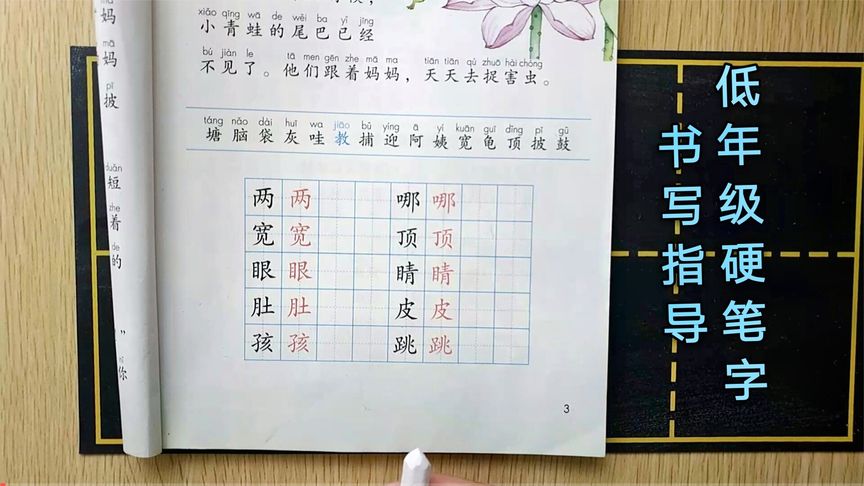 妈
mā
妈
pī
披
duǎn
短
zhe
着
de
的
”
你
xiǎo qīng wā de wěi ba yǐ jīng
小青蛙的尾巴已经
bú jiàn le tā men gēn zhe mā ma tiān tiān qù zhuō hài chóng
不见了。他们跟着妈妈，天天去捉害虫。
táng nǎo dài huī wa jiāo bǔ yíng ā yí kuān guī dǐng pī gǔ
塘脑袋灰哇教捕迎阿姨宽龟顶披鼓
两 两 哪 哪
宽 宽 顶 顶
眼 眼 睛 睛
肚 肚 皮 皮
孩 孩 跳 跳
3
低年级硬笔字
书写指导